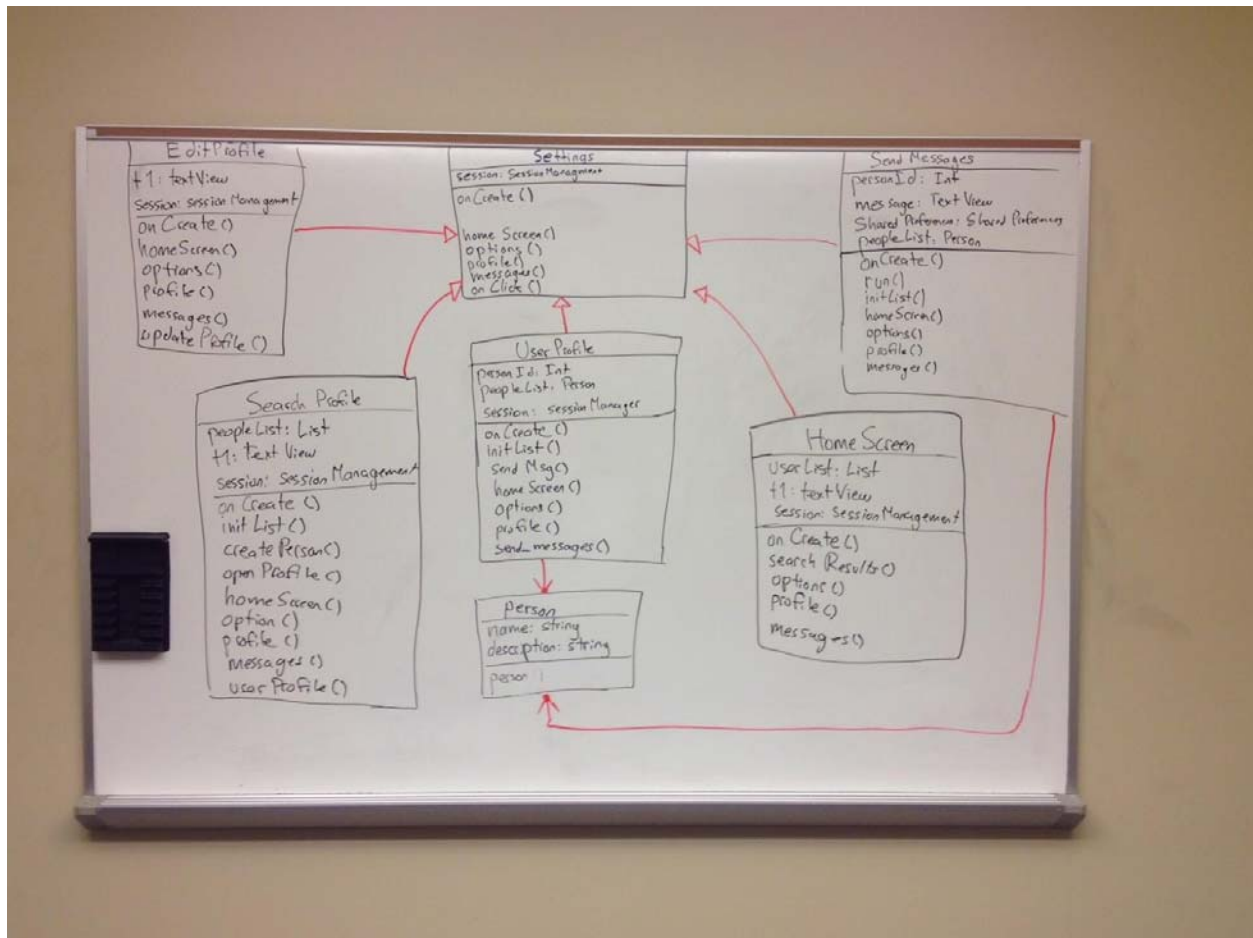 EditProfile
t1: textView
Session: session Management
onCreate()
homeScreen()
options()
profile()
messages()
update Profile()
Settings
session: SessionManagment
onCreate()
home Screen()
options()
profile()
messages()
onClick()
Send Messages
personId: Int
message: Text View
peopleList: Person
onCreate()
run()
initList()
homeScreen()
options()
profile()
messages()
Search Profile
peopleList: List
t1: text View
session: Session Management
onCreate()
initList()
createPerson()
open Profile()
homeScreen()
option()
profile()
messages()
userProfile()
User Profile
personId: Int
peopleList: Person
session: sessionManager
onCreate()
initList()
send Msg()
home Screen()
options()
profile()
send_messages()
Home Screen
UserList: List
t1: textView
Session: SessionManagement
onCreate()
search Results()
options()
profile()
messages()
person
name: string
description: string
person